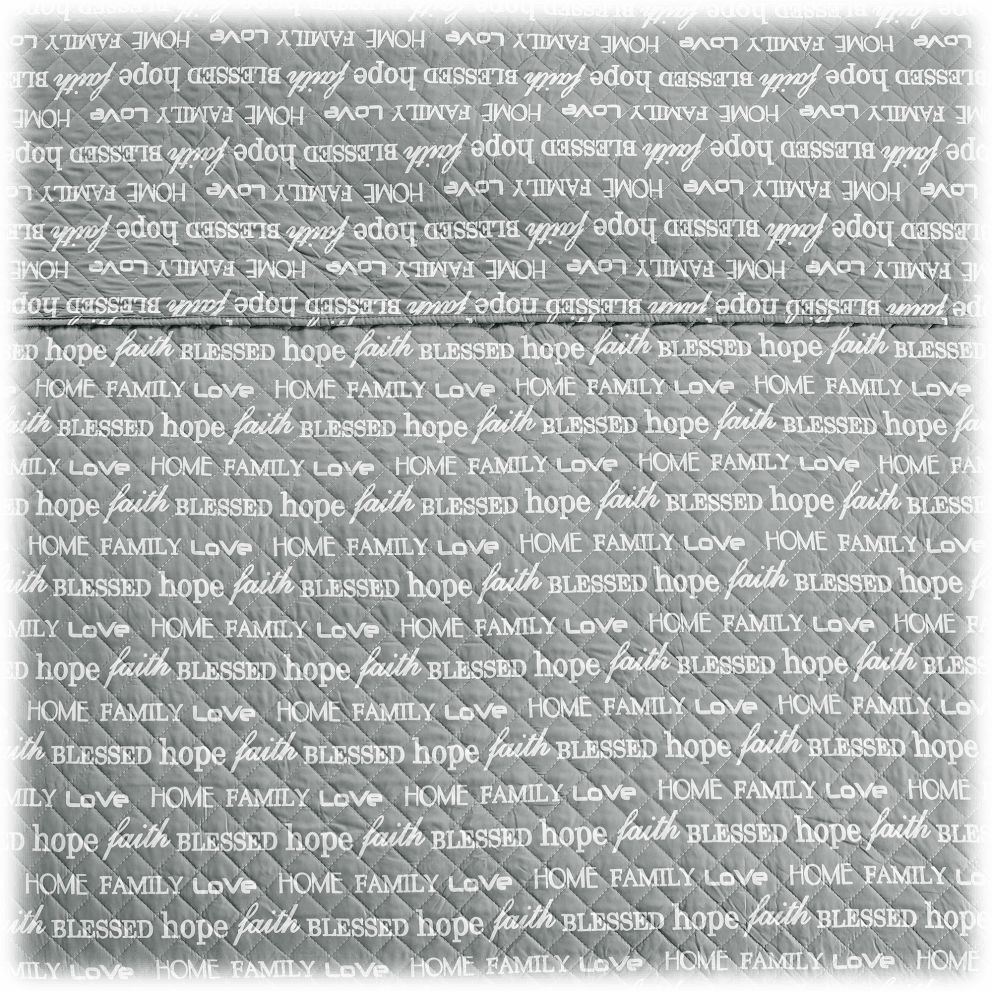 HOME FAMILY Love HOME FAMILY Love HOME FAMILY Love HOME FAMILY Love
BLESSED hope faith BLESSED hope faith BLESSED hope faith BLESSED hope faith BLESSED
HOME FAMILY Love HOME FAMILY Love HOME FAMILY Love HOME FAMILY Love HOME
hope faith BLESSED hope faith BLESSED hope faith BLESSED hope faith BLESSED hope
Love HOME FAMILY Love HOME FAMILY Love HOME FAMILY Love HOME FAMILY Love
BLESSED hope faith BLESSED hope faith BLESSED hope faith BLESSED hope faith
HOME FAMILY Love HOME FAMILY Love HOME FAMILY Love HOME FAMILY Love HOME
BLESSED hope faith BLESSED hope faith BLESSED hope faith BLESSED hope
hope faith BLESSED hope faith BLESSED hope faith BLESSED hope faith BLESSED
HOME FAMILY Love HOME FAMILY Love HOME FAMILY Love HOME FAMILY Love
faith BLESSED hope faith BLESSED hope faith BLESSED hope faith BLESSED hope
Love HOME FAMILY Love HOME FAMILY Love HOME FAMILY Love HOME
hope faith BLESSED hope faith BLESSED hope faith BLESSED hope faith BLESSED
HOME FAMILY Love HOME FAMILY Love HOME FAMILY Love HOME FAMILY Love
faith BLESSED hope faith BLESSED hope faith BLESSED hope faith BLESSED hope
Love HOME FAMILY Love HOME FAMILY Love HOME FAMILY Love HOME
hope faith BLESSED hope faith BLESSED hope faith BLESSED hope faith
HOME FAMILY Love HOME FAMILY Love HOME FAMILY Love HOME FAMILY
BLESSED hope faith BLESSED hope faith BLESSED hope faith BLESSED hope
Love HOME FAMILY Love HOME FAMILY Love HOME FAMILY Love HOME
hope faith BLESSED hope faith BLESSED hope faith BLESSED hope faith
HOME FAMILY Love HOME FAMILY Love HOME FAMILY Love HOME FAMILY
BLESSED hope faith BLESSED hope faith BLESSED hope faith BLESSED hope
Love HOME FAMILY Love HOME FAMILY Love HOME FAMILY Love HOME